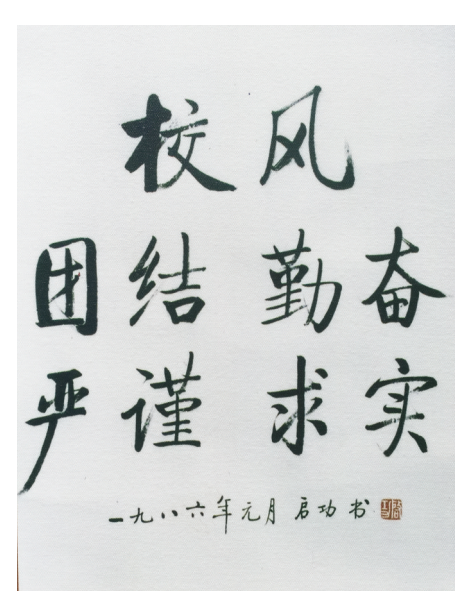 校风
团结 勤奋
严谨 求实
一九八六年元月 启功书
启功